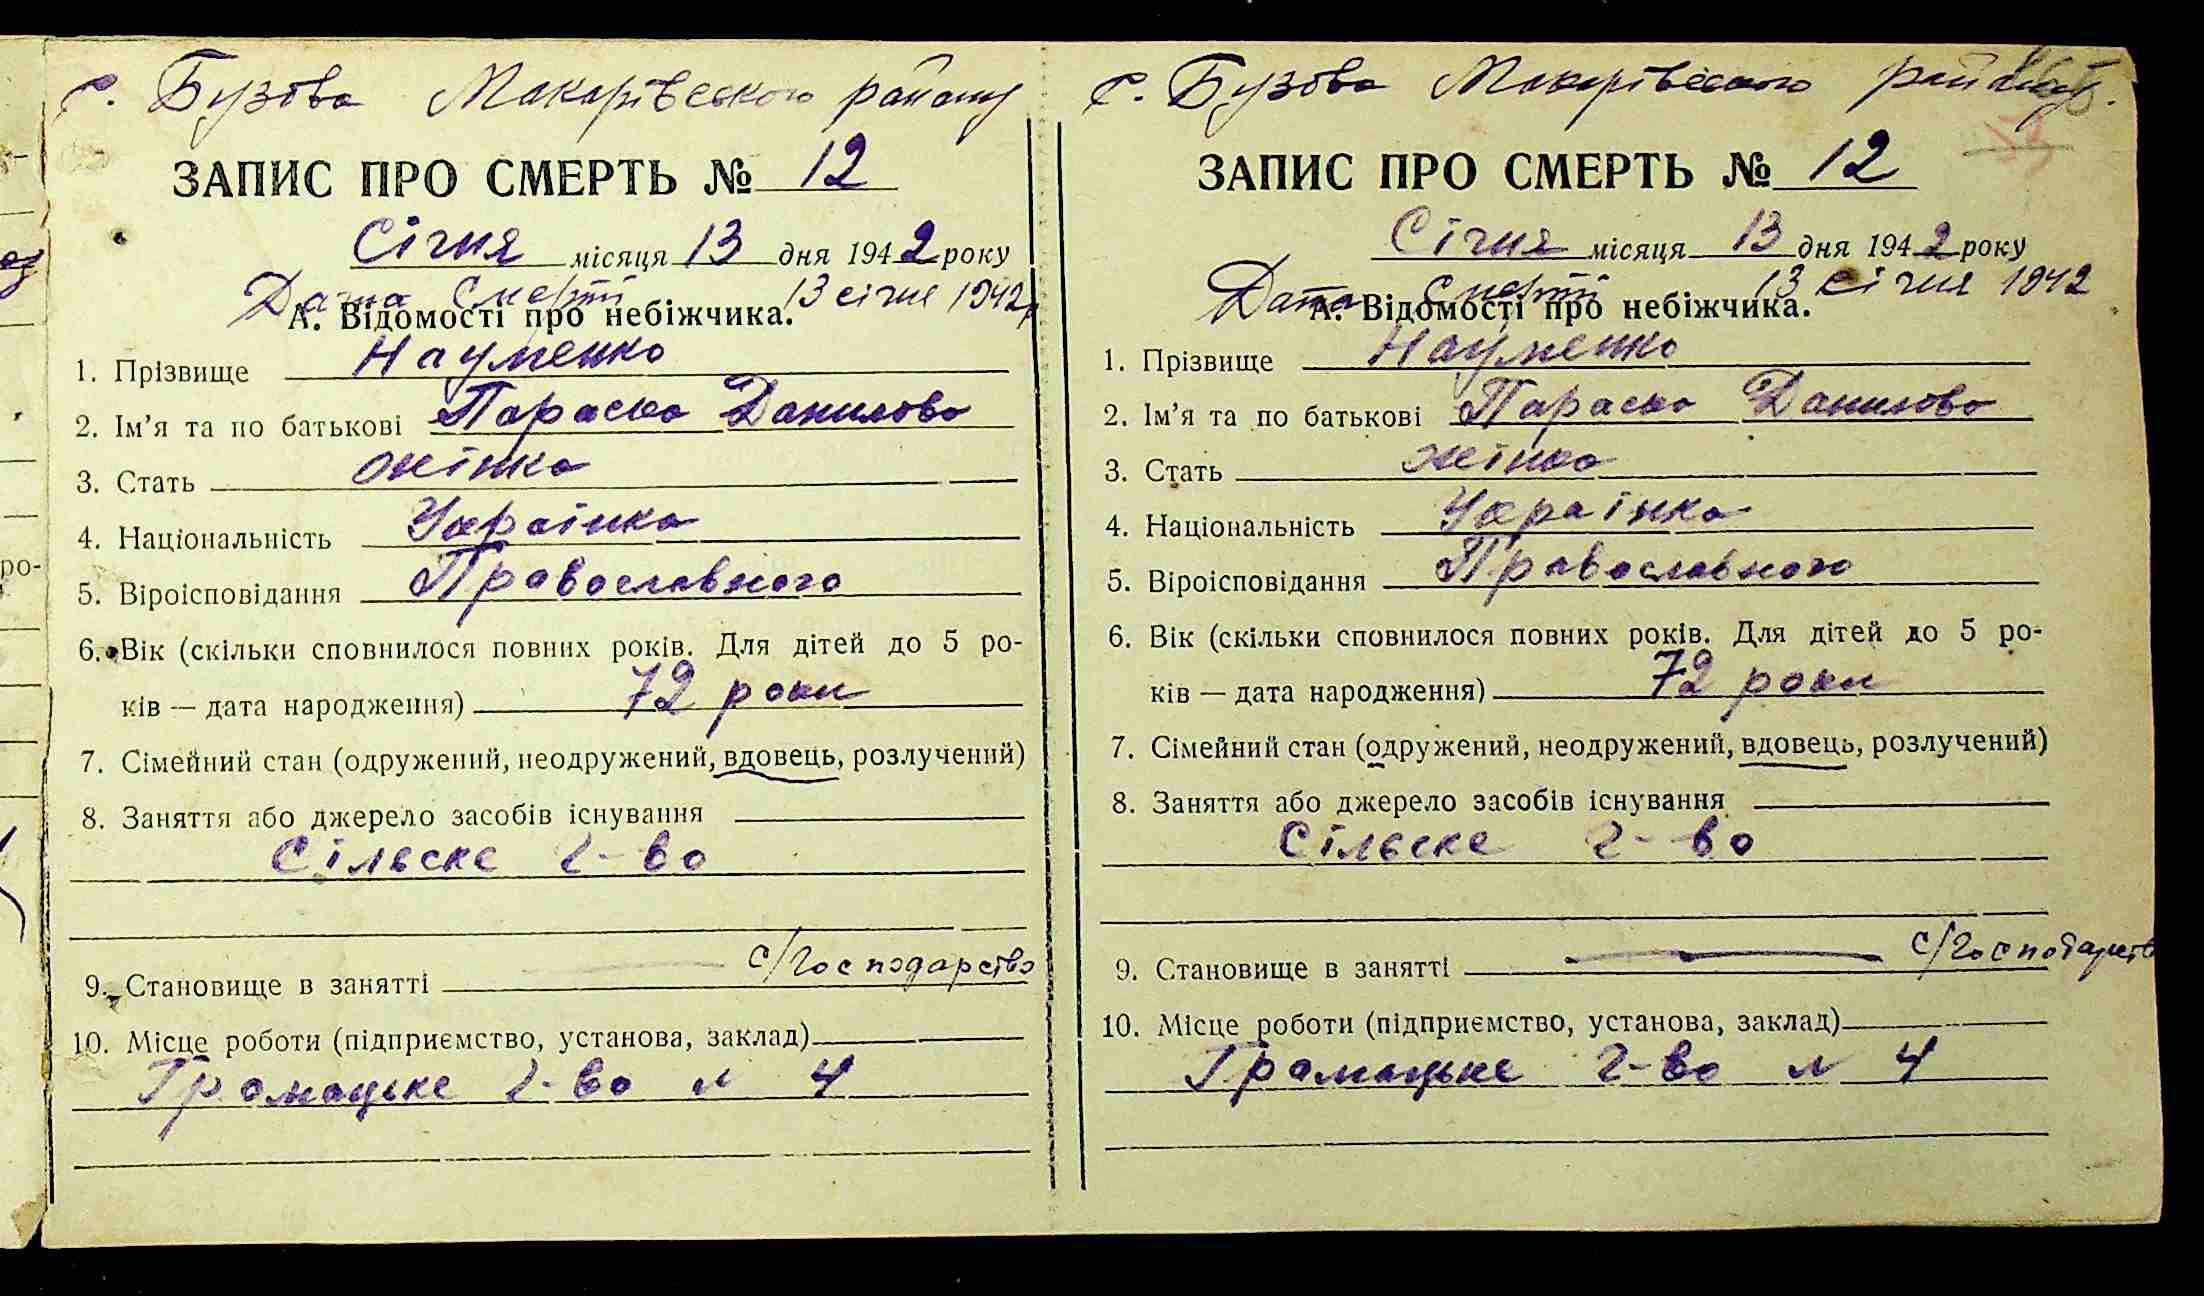 с. Бузова Макарівського району
ЗАПИС ПРО СМЕРТЬ № 12
Січня місяця 13 дня 1942 року
Дата смерті 13 січня 1942 р
А. Відомості про небіжчика.
1. Прізвище Науменко
2. Ім'я та по батькові Параска Данилова
3. Стать жінка
4. Національність Українка
5. Віроісповідання Православного
6. Вік (скільки сповнилося повних років. Для дітей до 5 ро-
ків — дата народження) 72 роки
7. Сімейний стан (одружений, неодружений, вдовець, розлучений)
8. Заняття або джерело засобів існування
Сільске г-во
9. Становище в занятті с/господарство
10. Місце роботи (підприємство, установа, заклад)
Громацьке г-во № 4
с. Бузова Макарівського району.
ЗАПИС ПРО СМЕРТЬ № 12
Січня місяця 13 дня 1942 року
Дата смерті 13 січня 1942
А. Відомості про небіжчика.
1. Прізвище Науменко
2. Ім'я та по батькові Параска Данилова
3. Стать жінка
4. Національність Українка
5. Віроісповідання Православного
6. Вік (скільки сповнилося повних років. Для дітей до 5 ро-
ків — дата народження) 72 роки
7. Сімейний стан (одружений, неодружений, вдовець, розлучений)
8. Заняття або джерело засобів існування
Сільске г-во
9. Становище в занятті — с/господарств
10. Місце роботи (підприємство, установа, заклад)
Громацьке г-во № 4